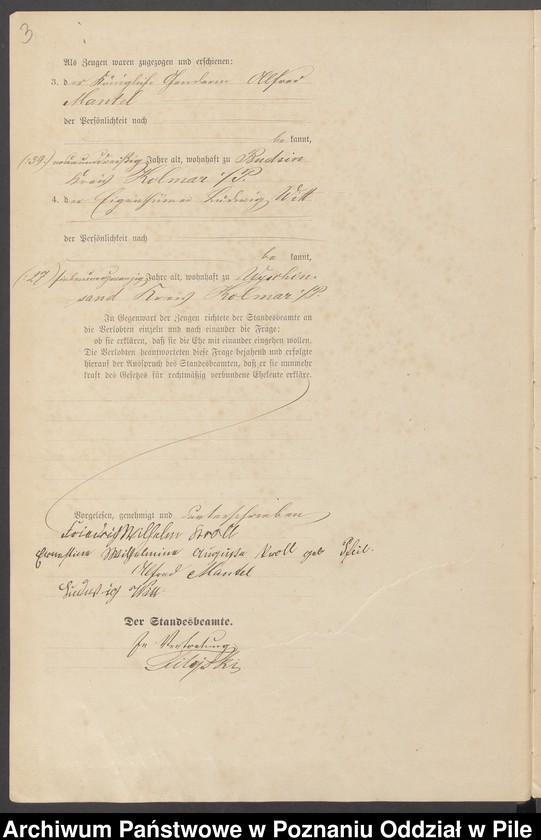 3
Als Zeugen waren zugezogen und erschienen:
3. der Königliche Gendarm Alfred
Mantel
der Persönlichkeit nach
bekannt,
(39) neununddreißig Jahre alt, wohnhaft zu Budsin
Kreis Kolmar i/P.
4. der Eigenthümer Ludwig Witt
der Persönlichkeit nach
bekannt,
(27) siebenundzwanzig Jahre alt, wohnhaft zu
sand Kreis Kolmar i/P.
In Gegenwart der Zeugen richtete der Standesbeamte an
die Verlobten einzeln und nach einander die Frage:
ob sie erklären, daß sie die Ehe mit einander eingehen wollen.
Die Verlobten beantworteten diese Frage bejahend und erfolgte
hierauf der Ausspruch des Standesbeamten, daß er sie nunmehr
kraft des Gesetzes für rechtmäßig verbundene Eheleute erkläre.
Vorgelesen, genehmigt und unterschrieben
Friedrich Wilhelm Kroll
Ernestine Wilhelmine Augusta Kroll geb
Alfred Mantel
Ludwig Witt.
Der Standesbeamte.
In Vertretung
Archiwum Państwowe w Poznaniu Oddział w Pile